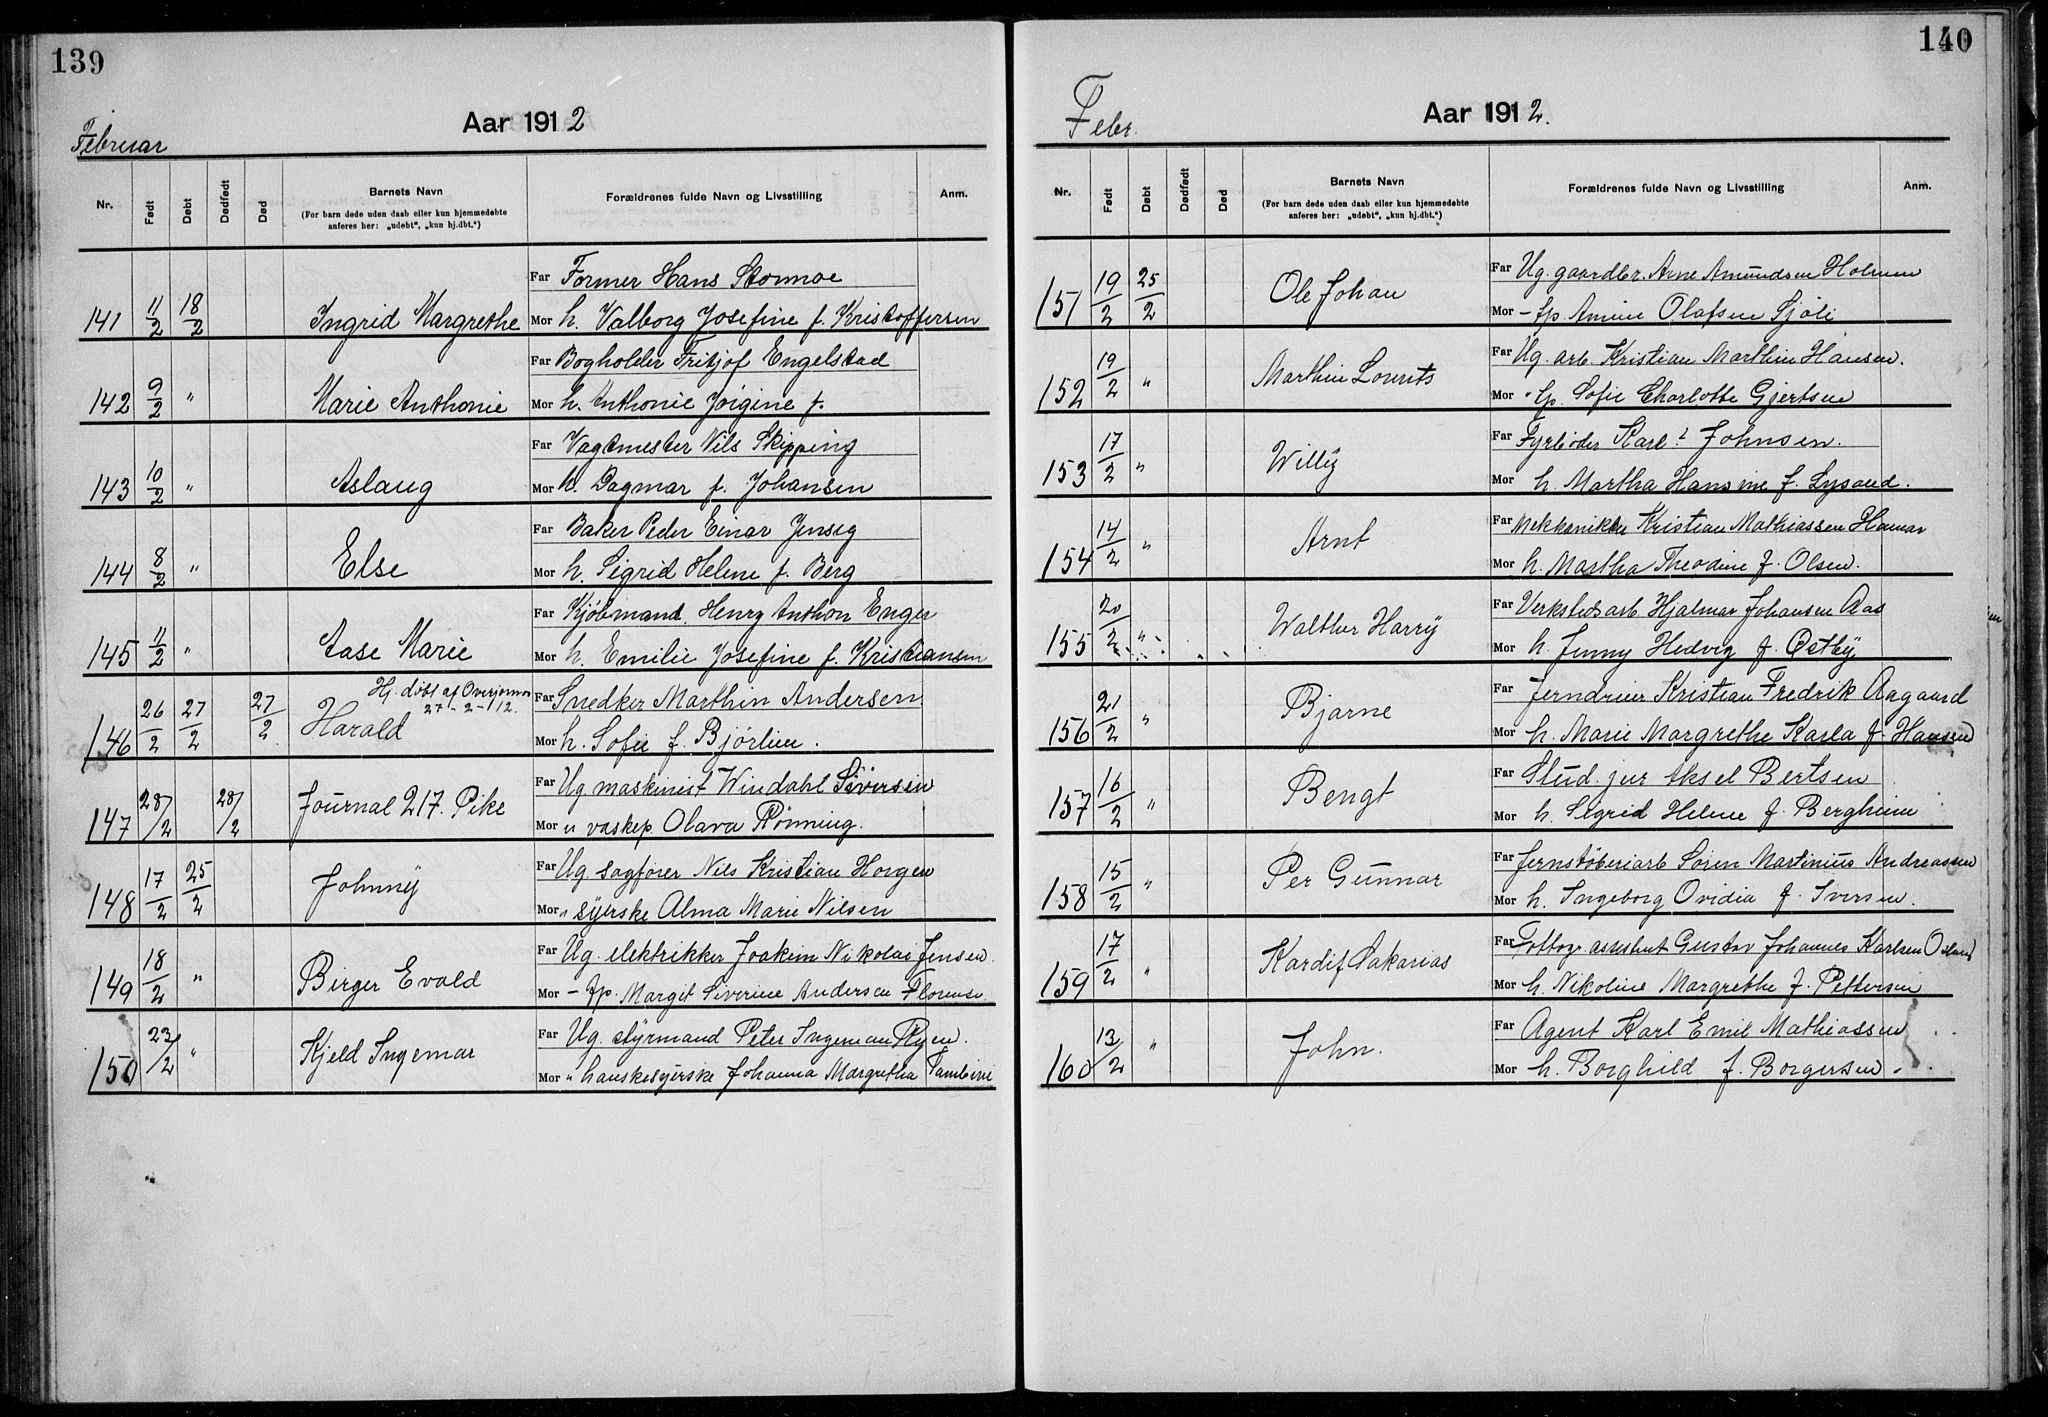 139
Februar
Aar 1912
Nr. Født Døbt Dødfødt Død Barnets Navn Forældrenes fulde Navn og Livsstilling Anm.
(For barn døde uden daab eller kun hjemmedøbte
anføres her: „udøbt“, „kun hj.dbt.“)
Far Former Hans Stormoe
141 11/2 18/2 Ingrid Margrethe Mor h. Valborg Josefine f. Kristoffersen
Far Bogholder Fritjof Engelstad
142 9/2 " Marie Anthonie Mor h. Anthonie Jørgine f.
Far Vagtmester Nils Skipping
143 10/2 " Aslaug Mor h. Dagmar f. Johansen
Far Baker Peder Einar Jenseg
144 8/2 " Else Mor h. Sigrid Helene f. Berg
Far Kjøbmand Henry Anthon Enger
145 11/2 " Aase Marie Mor h. Emilie Josefine f. Kristiansen
Hj. døbt af Overjormor
27-2-12.
Far Snedker Marthin Andersen
146 26/2 27/2 27/2 Harald Mor h. Sofie f. Bjørlien.
Far Ug maskinist Windahl Siversen
147 28/2 28/2 Journal 217. Pike Mor " vaskep. Olava Rønning.
Far Ug. sagfører Nils Kristian Horgen
148 17/2 25/2 Johnny Mor " syerske Alma Marie Nilsen
Far Ug. elektrikker Joakim Nikolai Jensen.
149 18/2 " Birger Evald Mor - tp. Margit Siverine Andersen Florense.
Far Ug. styrmand Peter Ingeman Ryen.
150 23/2 " Kjeld Ingemar Mor " hanskesyerske Johanna Margretha Tambini
140
Febr.
Aar 1912.
Nr. Født Døbt Dødfødt Død Barnets Navn Forældrenes fulde Navn og Livsstilling Anm.
(For barn døde uden daab eller kun hjemmedøbte
anføres her: „udøbt“, „kun hj.dbt.“)
Far Ug. gaardbr. Arne Amundsen Holmen
151 19/2 25/2 Ole Johan Mor - tp. Amine Olafsen Sjøli
Far Ug. arb. Kristian Marthin Hansen.
152 19/2 " Marthin Lourits Mor " tp. Sofie Charlotte Gjertsen
Far Fyrbøder Karl ? Johnsen.
153 17/2 " Willy Mor h. Martha Hansine f. Lysaud.
Far Mekkanikker Kristian Mathiassen Hamar
154 14/2 " Arnt Mor h. Martha Theodine f. Olsen.
Far Verkstedsarb. Hjalmar Johansen Aas
155 20/2 " Walther Harry Mor h. Jenny Hedvig f. Østby
Far Jerndreier Kristian Fredrik Aagaard
156 21/2 " Bjarne Mor h. Marie Margrethe Karla f. Hansen
Far Stud. jur Aksel Bertsen
157 16/2 " Bengt Mor h. Sigrid Helene f. Bergheim
Far Jernstøberiarb Søren Martinius Andreassen
158 15/2 " Per Gunnar Mor h. Ingeborg Ovidia f. Iversen.
Far Fottogr. assistent Gustav Johannes Karlsen
159 17/2 " Kardif Sakarias Mor h. Nikoline Margrethe f. Pettersen
Far Agent Karl Emil Mathiassen
160 13/2 " John. Mor h. Borghild f. Borgersen.